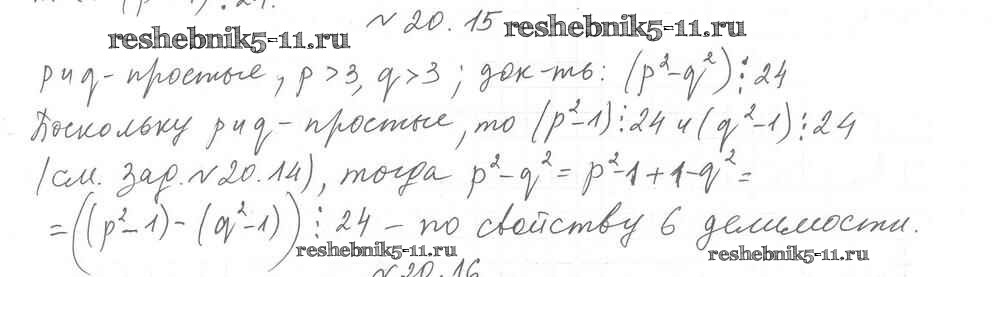 № 20.15
reshebnik5-11.ru reshebnik5-11.ru
p и q - простые, p > 3, q > 3; док-ть: (p²-q²)⋮24
Поскольку p и q - простые, то (p²-1)⋮24 и (q²-1)⋮24
(см. зад. №20.14), тогда p²-q² = p²-1+1-q² =
= ((p²-1) - (q²-1)) ⋮ 24 - по свойству 6 делимости.
reshebnik5-11.ru reshebnik5-11.ru
№20.16